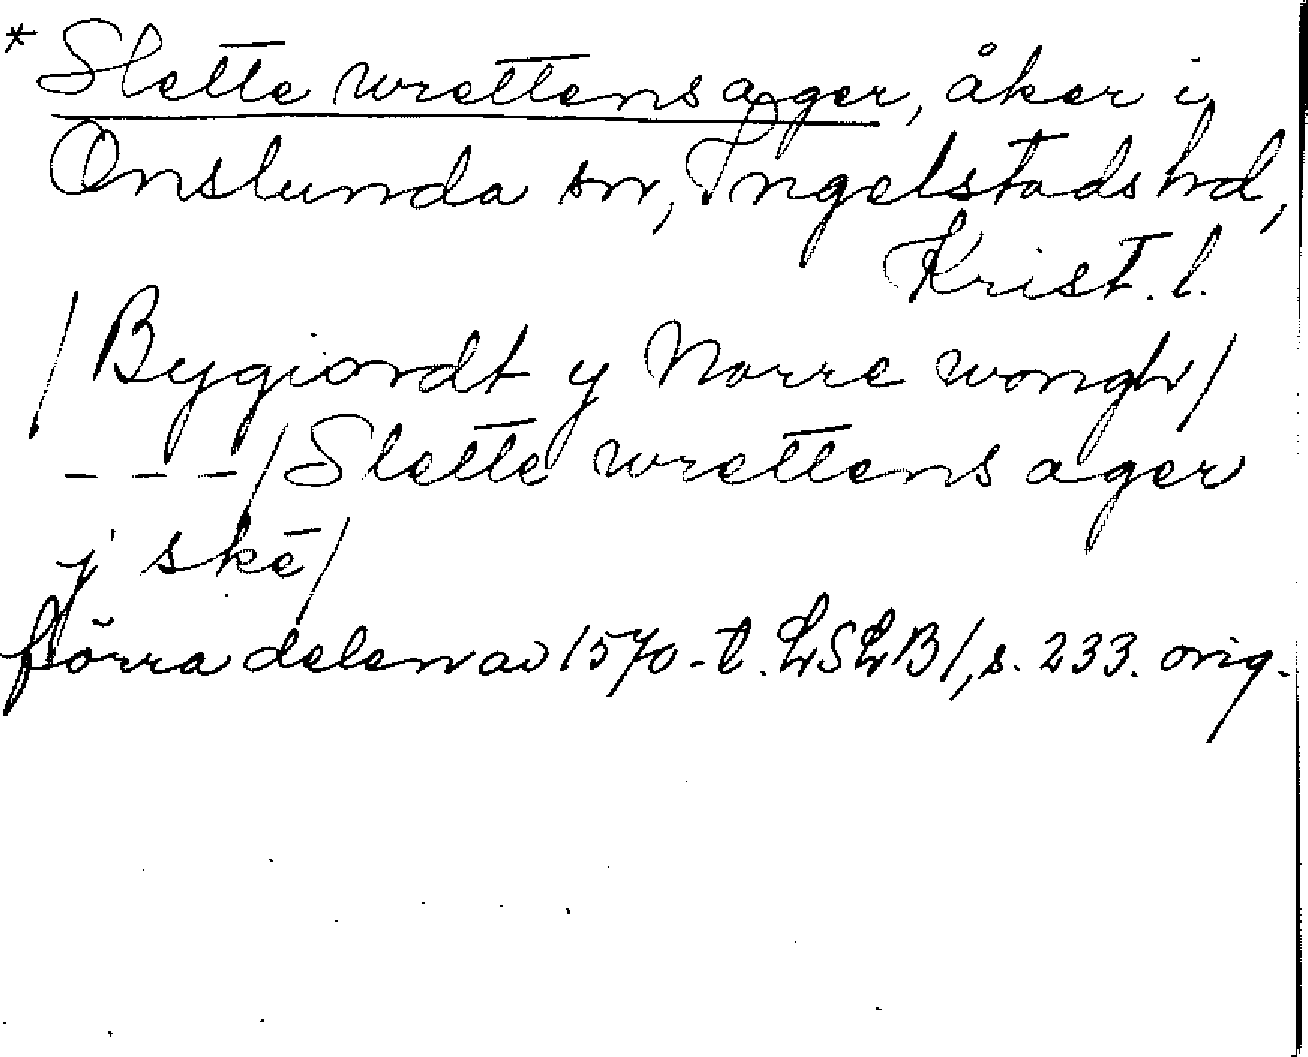 * Slette wrettens ager, åker i
Onslunda sn, Ingelstads hd,
Krist. l.
/ Bygiordt y Norre wongh /
- - - / Slette wrettens ager
j skē /
förra delen av 1570-t. LSLB 1, s. 233. orig.